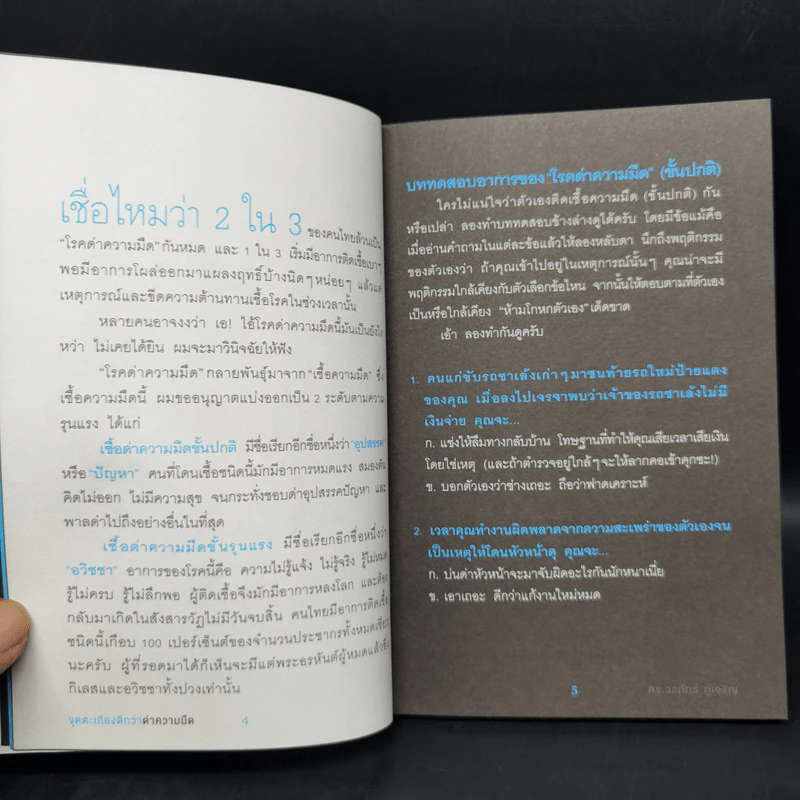 เชื่อไหมว่า 2 ใน 3 ของคนไทยล้วนเป็น
"โรคด่าความมืด" กันหมด และ 1 ใน 3 เริ่มมีอาการติดเชื้อเบาๆ
พอมีอาการโผล่ออกมาแผลงฤทธิ์บ้างนิดๆหน่อยๆ แล้วแต่
เหตุการณ์และขีดความต้านทานเชื้อโรคในช่วงเวลานั้น
หลายคนอาจงงว่า เอ! ไอ้โรคด่าความมืดนี้มันเป็นยังไง
หว่า ไม่เคยได้ยิน ผมจะมาวินิจฉัยให้ฟัง
"โรคด่าความมืด" กลายพันธุ์มาจาก "เชื้อความมืด" ซึ่ง
เชื้อความมืดนี้ ผมขออนุญาตแบ่งออกเป็น 2 ระดับตามความ
รุนแรง ได้แก่
เชื้อด่าความมืดขั้นปกติ มีชื่อเรียกอีกชื่อหนึ่งว่า "อุปสรรค"
หรือ "ปัญหา" คนที่โดนเชื้อชนิดนี้มักมีอาการหมดแรง สมองตัน
คิดไม่ออก ไม่มีความสุข จนกระทั่งชอบด่าอุปสรรคปัญหา และ
พาลด่าไปถึงอย่างอื่นในที่สุด
เชื้อด่าความมืดขั้นรุนแรง มีชื่อเรียกอีกชื่อหนึ่งว่า
"อวิชชา" อาการของโรคนี้คือ ความไม่รู้แจ้ง ไม่รู้จริง ไม่รู้หมด
รู้ไม่ครบ รู้ไม่ลึกพอ ผู้ติดเชื้อจึงมักมีอาการหลงโลก และต้อง
กลับมาเกิดในสังสารวัฏไม่มีวันจบสิ้น คนไทยมีอาการติดเชื้อ
ชนิดนี้เกือบ 100 เปอร์เซ็นต์ของจำนวนประชากรทั้งหมดเชียว
นะครับ ผู้ที่รอดมาได้ก็เห็นจะมีแต่พระอรหันต์ผู้หมดแล้วซึ่ง
กิเลสและอวิชชาทั้งปวงเท่านั้น
จุดตะเกียงดีกว่าด่าความมืด 4
บททดสอบอาการของ "โรคด่าความมืด" (ขั้นปกติ)
ใครไม่แน่ใจว่าตัวเองติดเชื้อความมืด (ขั้นปกติ) กัน
หรือเปล่า ลองทำบททดสอบข้างล่างดูได้ครับ โดยมีข้อแม้คือ
เมื่ออ่านคำถามในแต่ละข้อแล้วให้ลองหลับตา นึกถึงพฤติกรรม
ของตัวเองว่า ถ้าคุณเข้าไปอยู่ในเหตุการณ์นั้นๆ คุณน่าจะมี
พฤติกรรมใกล้เคียงกับตัวเลือกข้อไหน จากนั้นให้ตอบตามที่ตัวเอง
เป็นหรือใกล้เคียง "ห้ามโกหกตัวเอง" เด็ดขาด
เอ้า ลองทำกันดูครับ
1. คนแก่ขับรถซาเล้งเก่าๆ มาชนท้ายรถใหม่ป้ายแดง
ของคุณ เมื่อลงไปเจรจาพบว่าเจ้าของรถซาเล้งไม่มี
เงินจ่าย คุณจะ...
ก. แช่งให้ลืมทางกลับบ้าน โทษฐานที่ทำให้คุณเสียเวลาเสียเงิน
โดยใช่เหตุ (และถ้าตำรวจอยู่ใกล้ๆ จะให้ลากคอเข้าคุกซะ!)
ข. บอกตัวเองว่าช่างเถอะ ถือว่าฟาดเคราะห์
2. เวลาคุณทำงานผิดพลาดจากความสะเพร่าของตัวเองจน
เป็นเหตุให้โดนหัวหน้าดุ คุณจะ...
ก. บ่นด่าหัวหน้าจะมาจับผิดอะไรกันนักหนาเนี่ย
ข. เอาเถอะ ดีกว่าแก้งานใหม่หมด
5 ดร.วรภัทร์ ภู่เจริญ